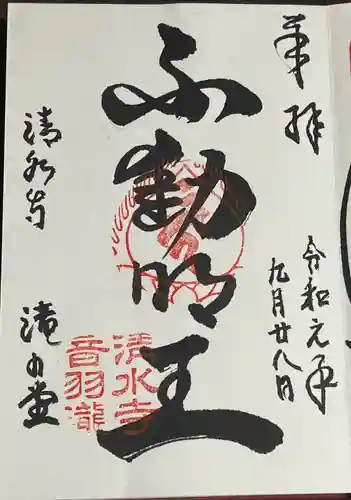 奉拝
令和元年
九月廿八日
不動明王
清水寺
滝の堂
清水寺
音羽瀧